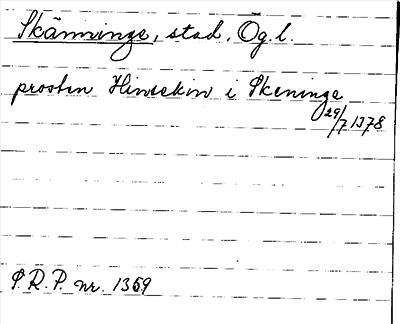 Skänninge, stad, Ög. l.
prosten Hinsekin i Skeninge
29/7 1378
S. R. P. nr. 1359